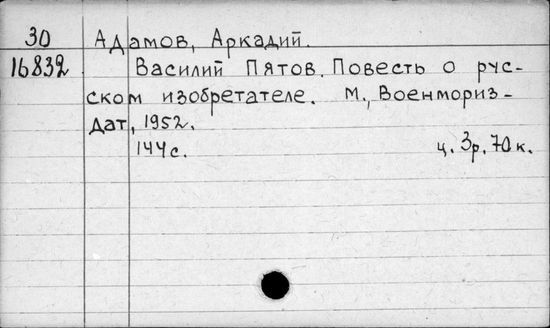 30 Адамов, Аркадий.
16832 Василий Пятов. Повесть о рус-
ском изобретателе. М., Военмориз-
дат, 1952.
144 с. ц. 3р. 70 к.